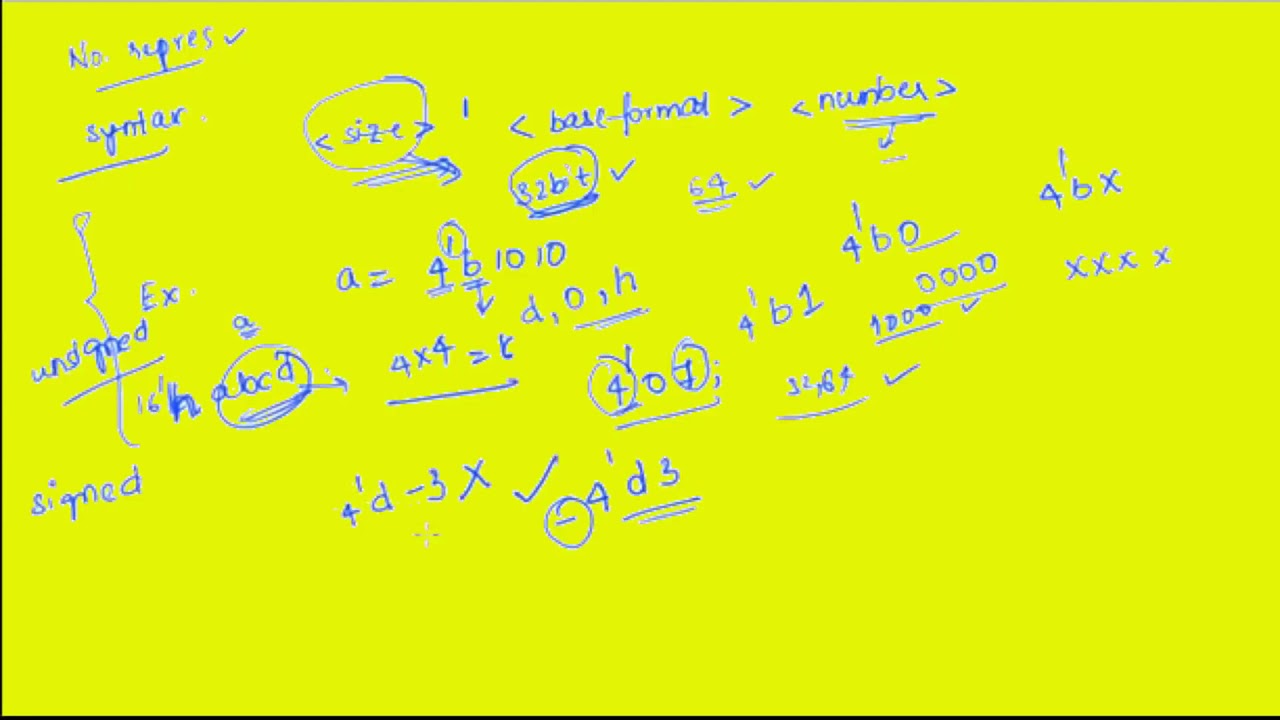 No. repres ✓
syntax.
<size> ' <base-format> <number>
32bit ✓ 64 ✓
4'bx
a = 4'b1010
4'b0
0000
xxxx
d, o, h
4'b1
1000 ✓
Ex.
unsigned
a
16'h abcd
4x4 =
4'o1;
32,64 ✓
signed
4'd-3 X
✓ -4'd3